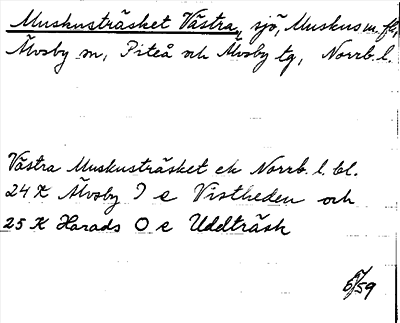 Muskusträsket Västra, sjö, Muskus m. fl.,
Älvsby sn, Piteå och Älvsby tg, Norrb. l.
Västra Muskusträsket ek Norrb. l. bl.
24 K Älvsby 9 e Vistheden och
25 K Harads 0 e Uddträsk